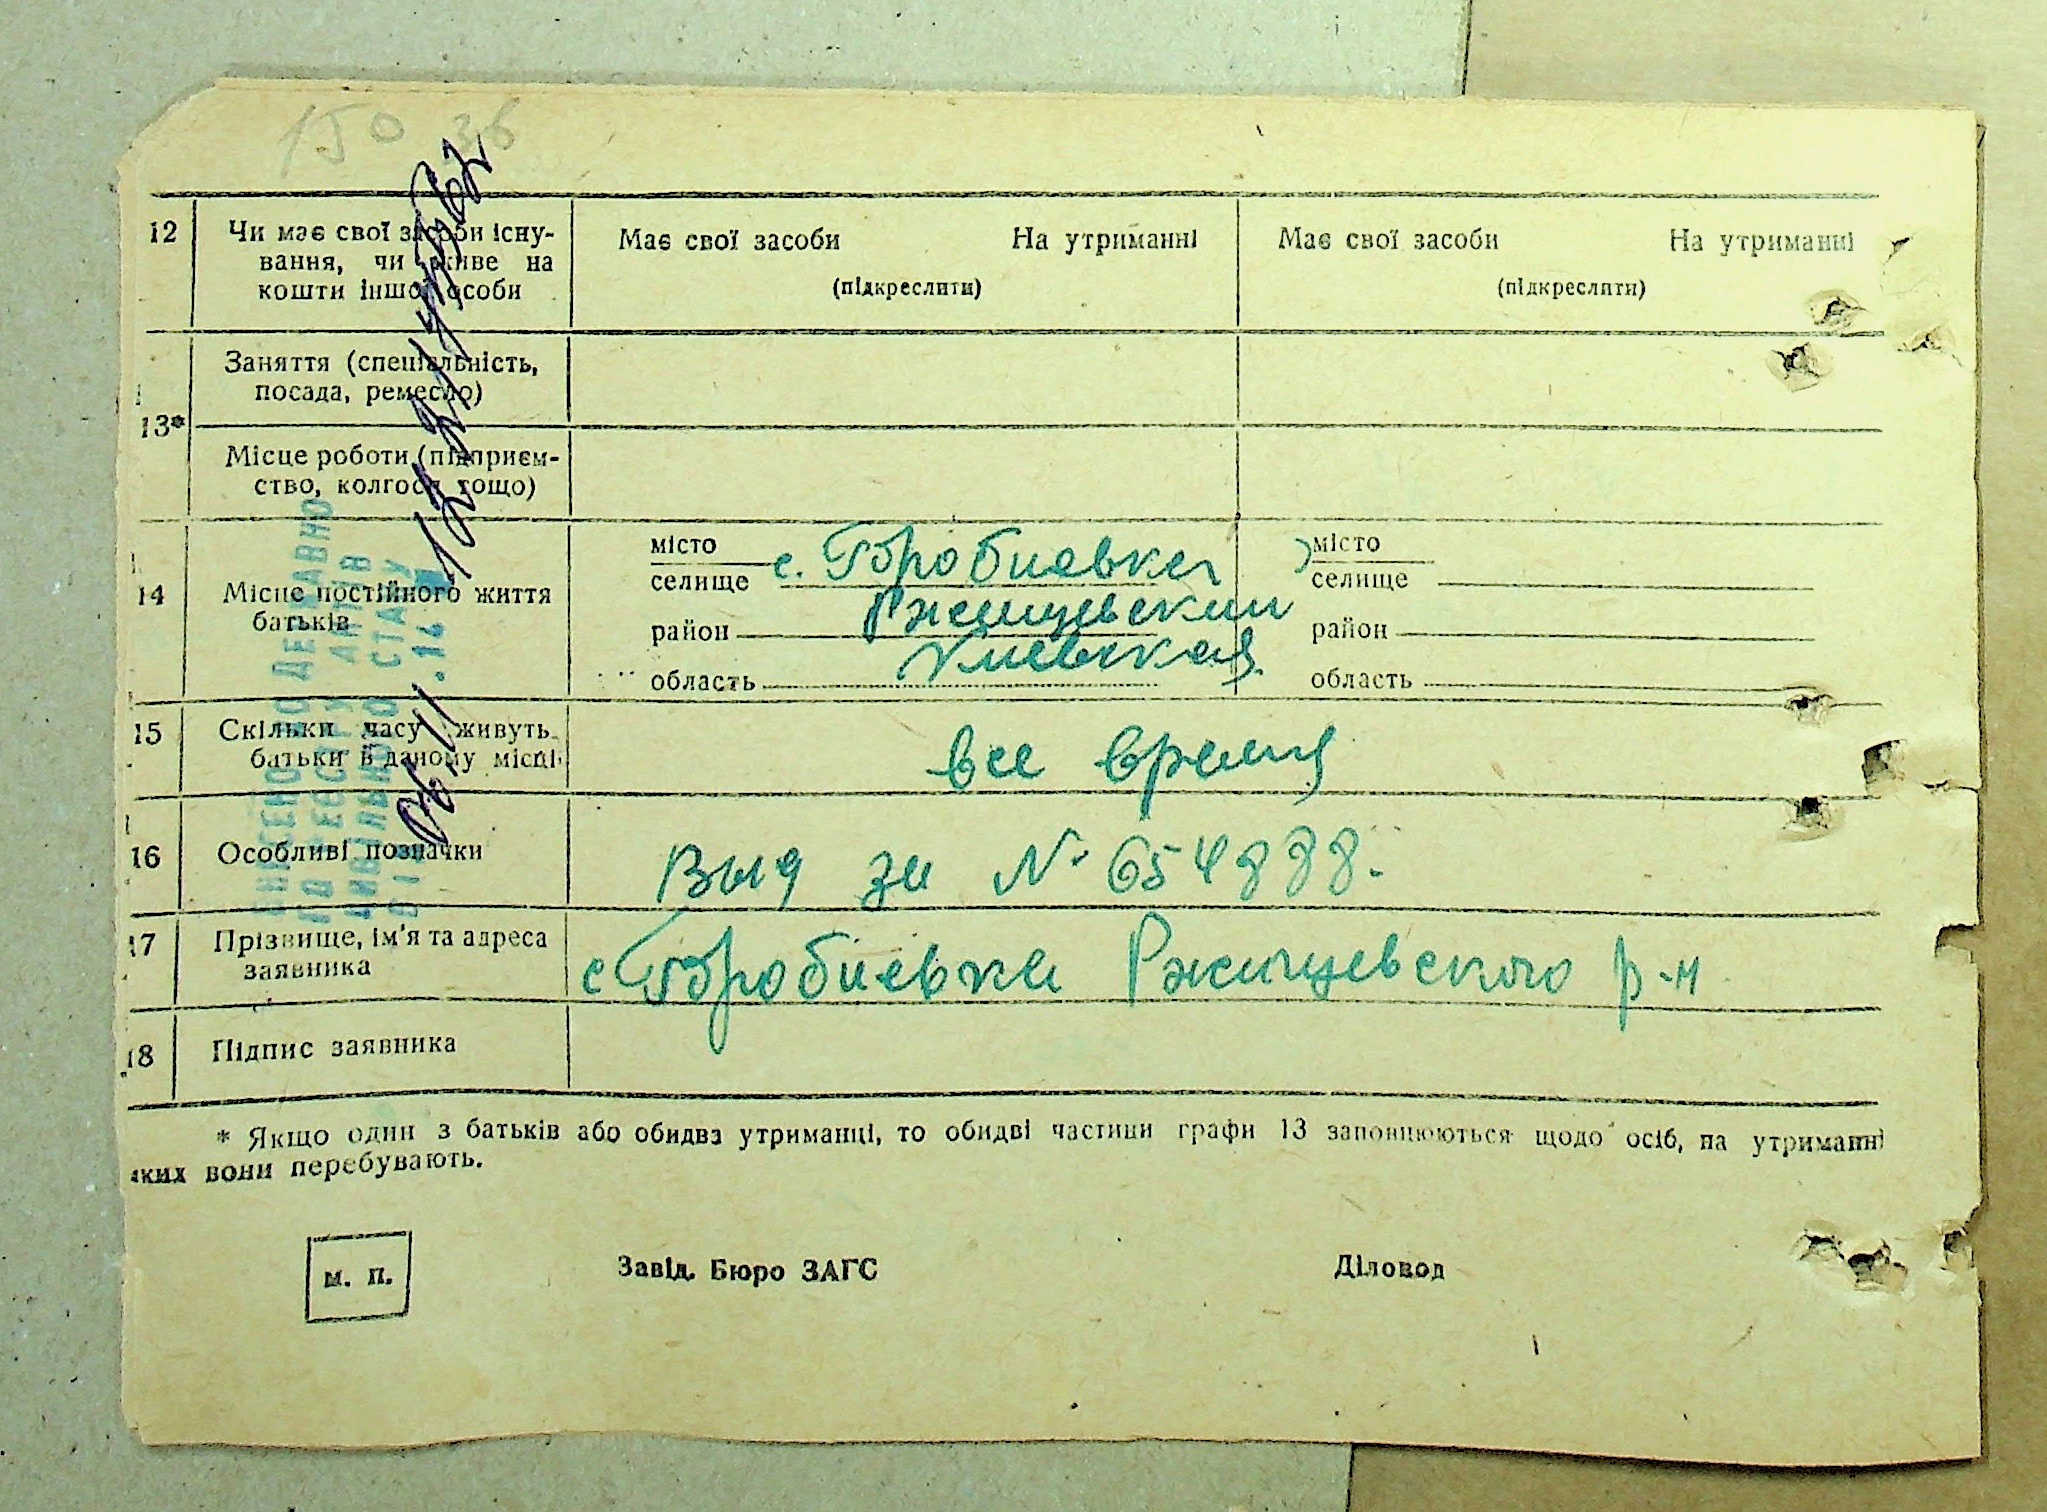 150 36
12 Чи має свої засоби існу- Має свої засоби На утриманні Має свої засоби На утриманні
вання, чи живе на
кошти іншої особи (підкреслити) (підкреслити)
Заняття (спеціальність,
посада, ремесло)
13*
Місце роботи (підприєм-
ство, колгосп тощо)
місто с. Горобиевка місто
селище селище
14 Місце постійного життя
батьків район Ржищевский район
область Киевская область
15 Скільки часу живуть все время
батьки в даному місці
16 Особливі позначки Выд за № 654888.
17 Прізвище, ім'я та адреса с Горобиевка Ржищевского р-н
заявника
18 Підпис заявника
* Якщо один з батьків або обидва утриманці, то обидві частини графи 13 заповнюються щодо осіб, на утриманні
яких вони перебувають.
м. п. Завід. Бюро ЗАГС Діловод
ВНЕСЕНО ДО ДЕРЖАВНО
ГО РЕЄСТРУ АКТІВ
ЦИВІЛЬНОГО СТАНУ